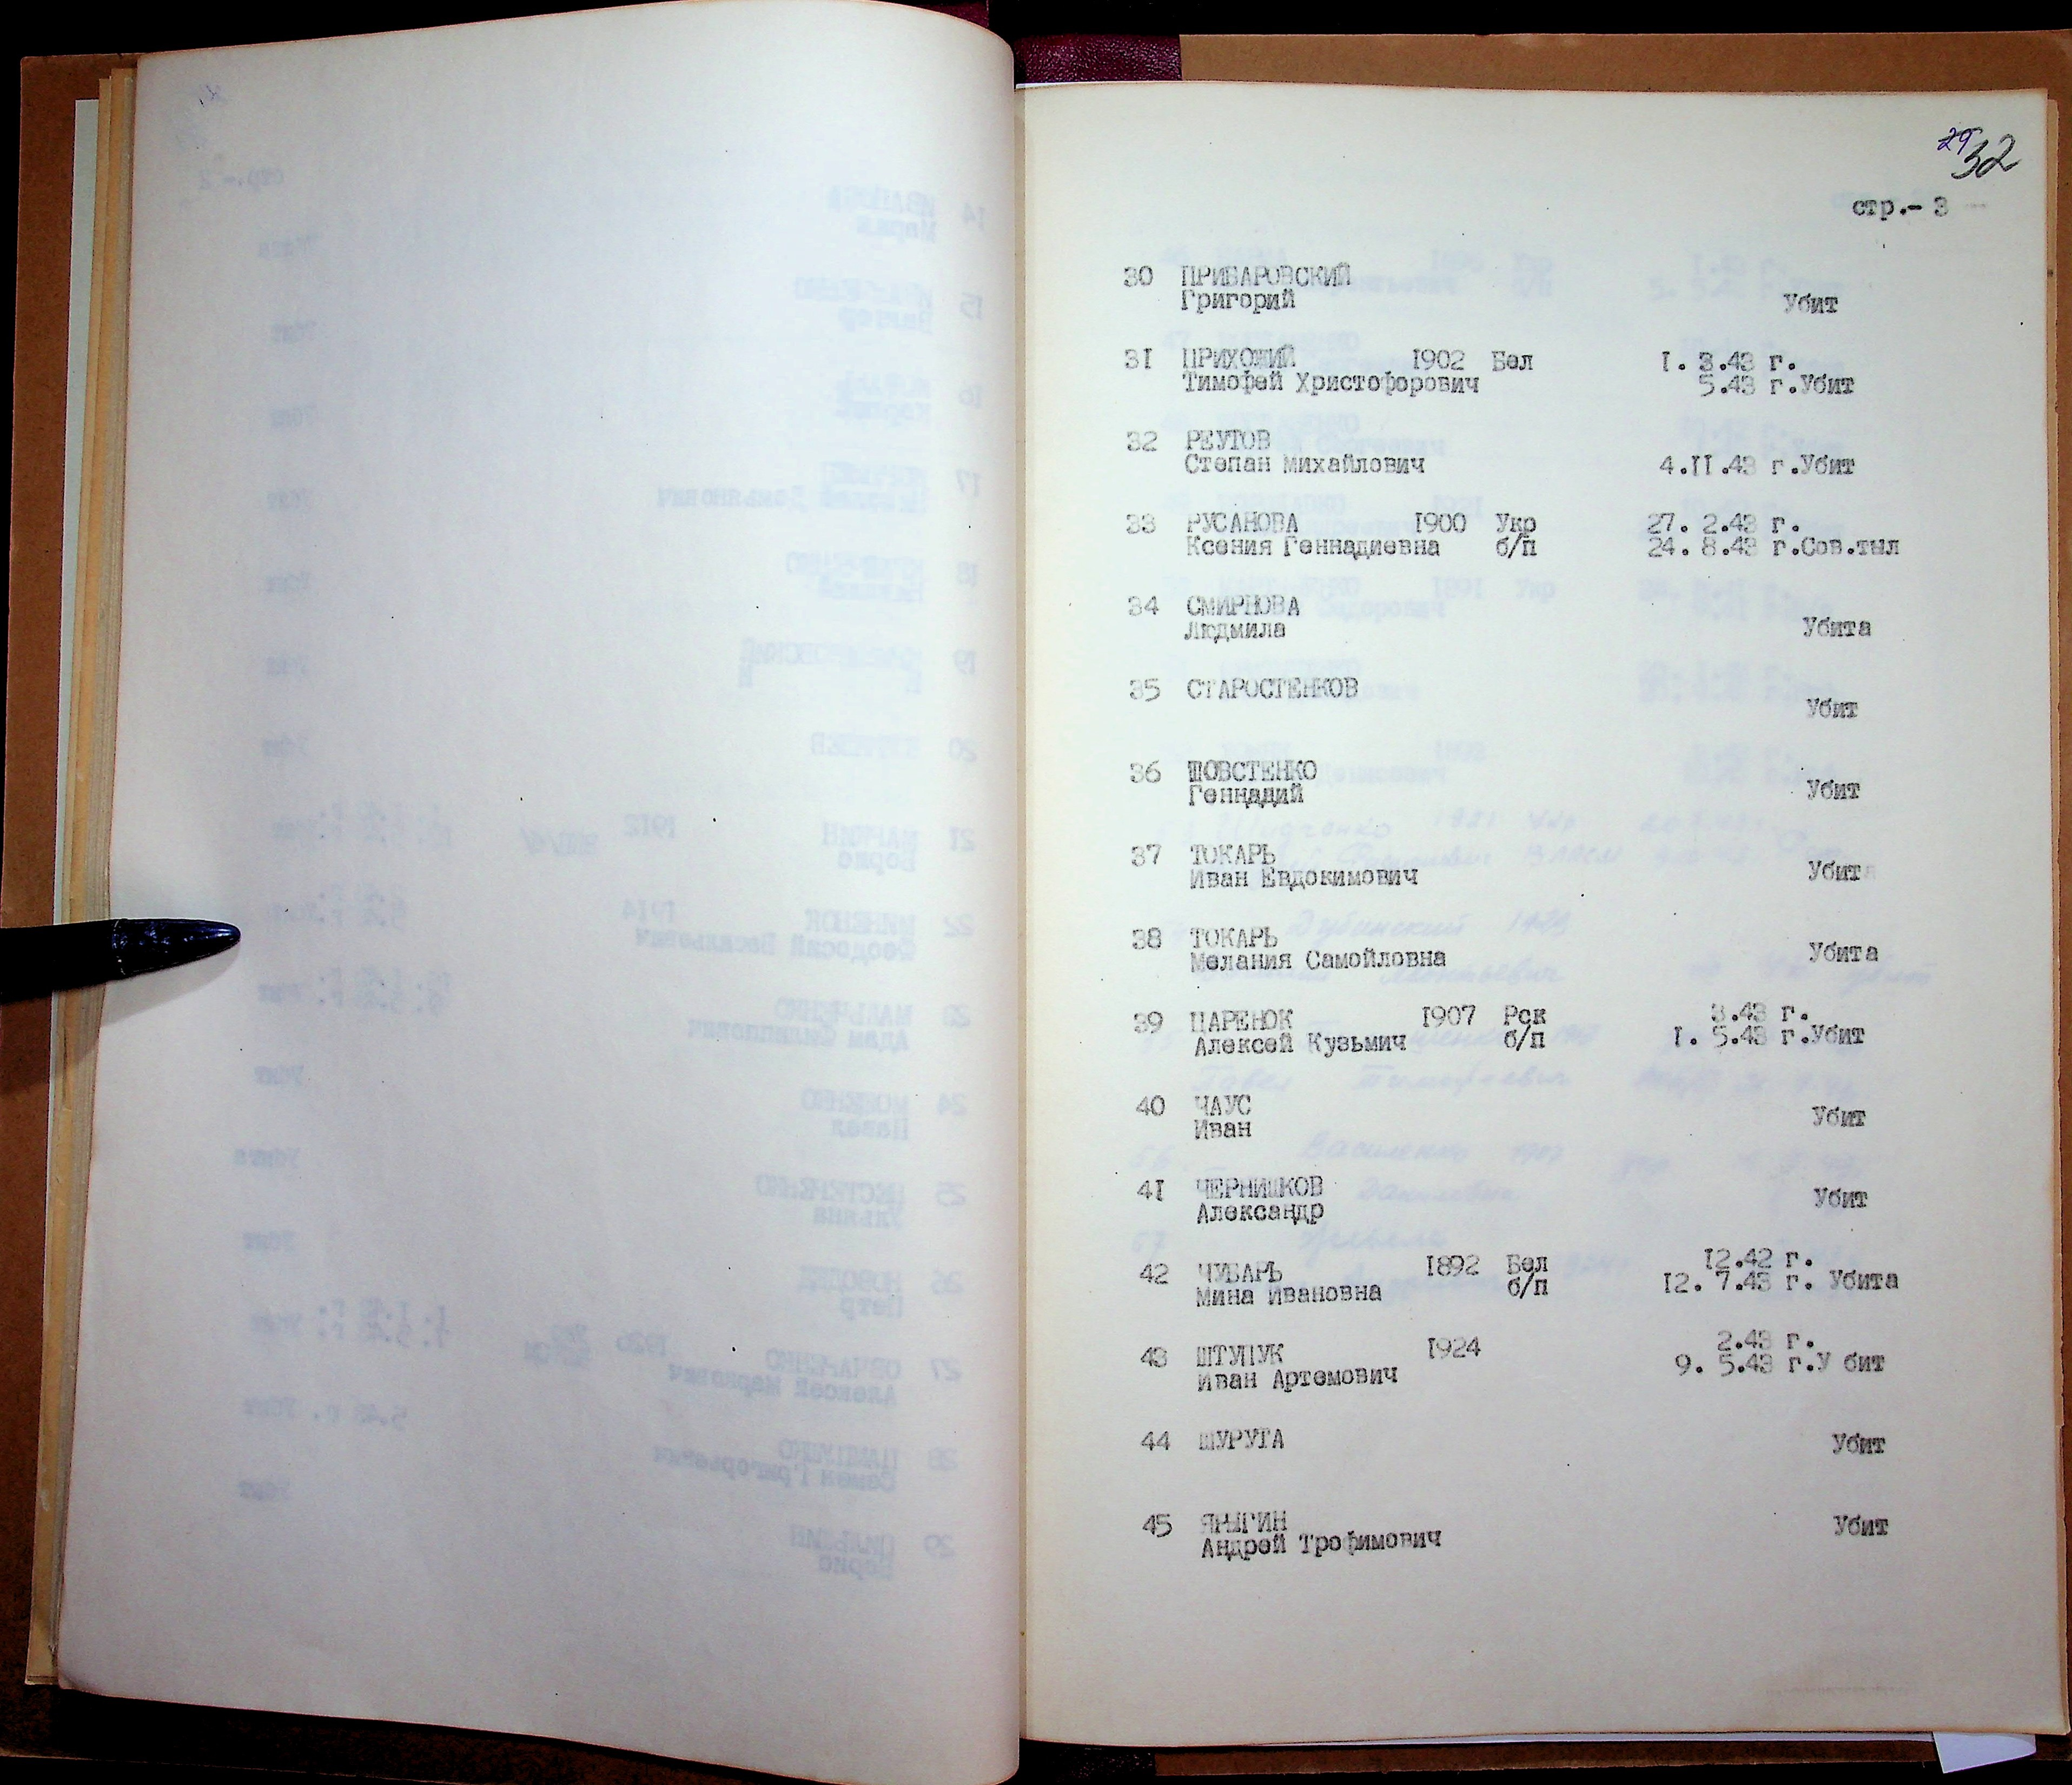 29 32
стр.- 3
30 ПРИБАРОВСКИЙ
Григорий Убит
31 ПРИХОЖИЙ 1902 Бел I. 3.43 г.
Тимофей Христофорович 5.43 г.Убит
32 РЕУТОВ
Степан Михайлович 4.II.43 г.Убит
33 РУСАНОВА I900 Укр 27. 2.43 г.
Ксения Геннадиевна б/п 24. 8.43 г.Сов.тыл
34 СМИРНОВА
Людмила Убита
35 СТАРОСТЕНКОВ
Убит
36 ШОВСТЕНКО
Геннадий Убит
37 ТОКАРЬ
Иван Евдокимович Убит
38 ТОКАРЬ
Мелания Самойловна Убита
39 ЦАРЕНОК I907 Рск 3.43 г.
Алексей Кузьмич б/п I. 5.43 г.Убит
40 ЧАУС
Иван Убит
4I ЧЕРНИШКОВ
Александр Убит
42 ЧУБАРЬ I892 Бел I2.42 г.
Мина Ивановна б/п I2. 7.43 г. Убита
43 ШТУПУК I924 2.43 г.
Иван Артемович 9. 5.43 г.У бит
44 ШУРУГА Убит
45 ЯРЫГИН
Андрей Трофимович Убит